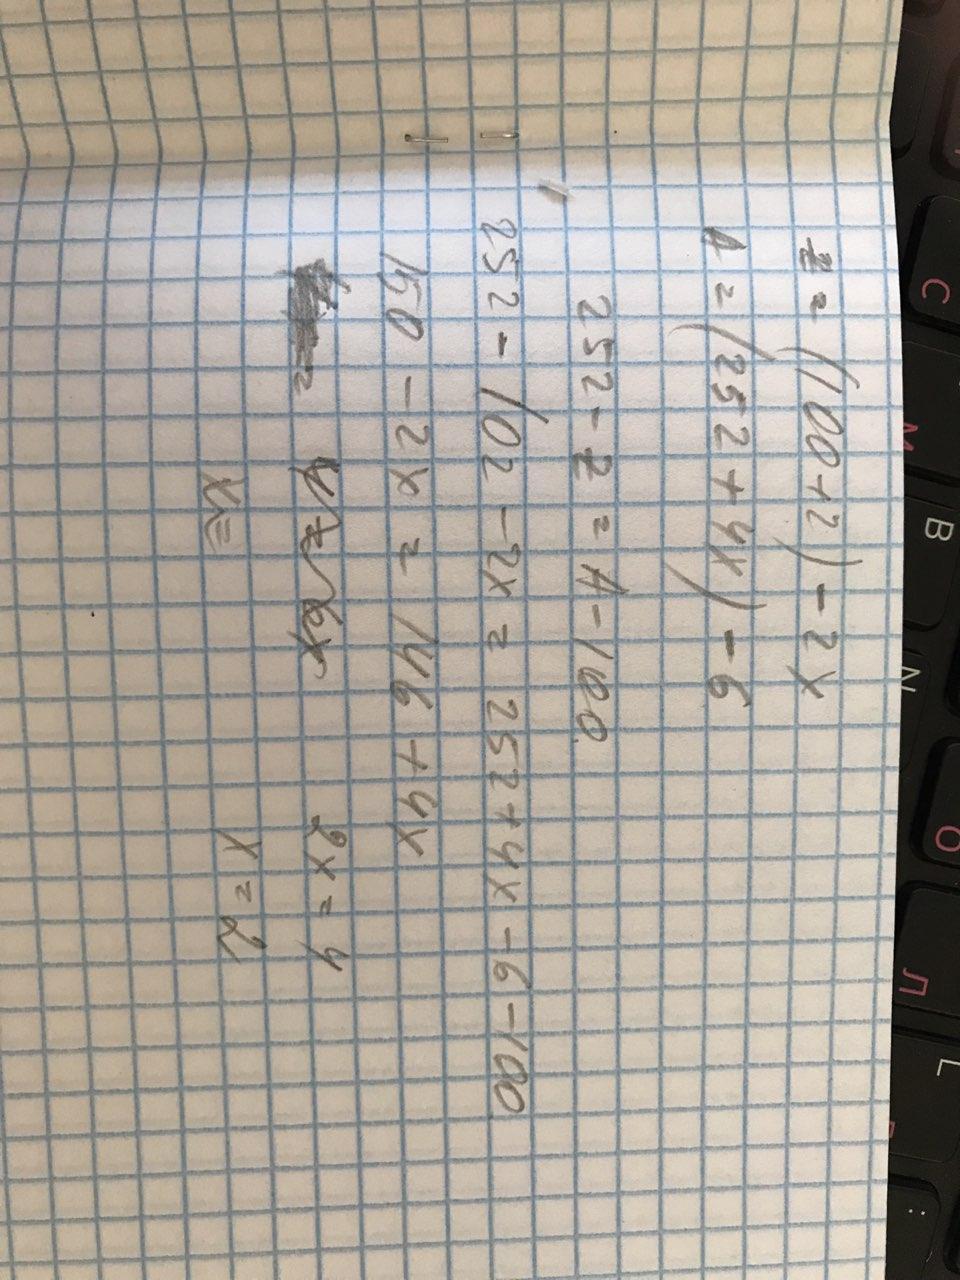 z = (100+2) - 2x
A = (252 + 4x) - 6
252 - z = A - 100
252 - 102 - 2x = 252 + 4x - 6 - 100
150 - 2x = 146 + 4x
= 4 = 6x 2x = 4
x = x = 2
C
M
B
N
O
Л
L